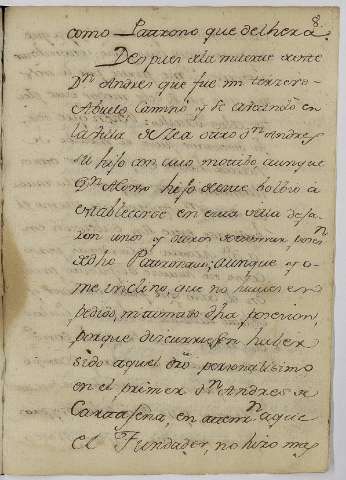 8.
como Patrono que del hera.
Despues de la muerte de este
Dn. Andres que fue mi terzero
Abuelo camino y se avecindò en
la villa de Zea otro Dn. Andres
su hijo con cuio motibo aunque
Dn. Alonso hijo de este bolbio a
establecerse en esta villa
unos y otros
de dho Patronato; aunque yo
me inclino, que no hubiesen
pedido, ni tomado dha posesion,
porque discurriesen haber
sido aquel dro personalisimo
en el primer Dn. Andres de
Cartagena, en atenn. a que
el Fundador, no hizo mas